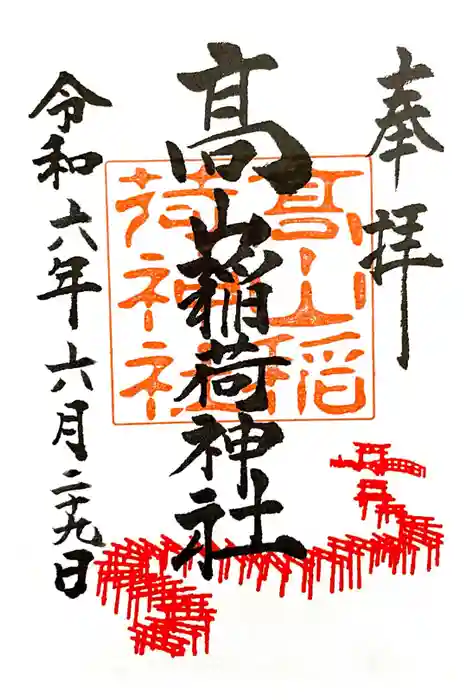 奉拝
髙山稲荷神社
髙山稲
荷神社
令和六年六月二十九日